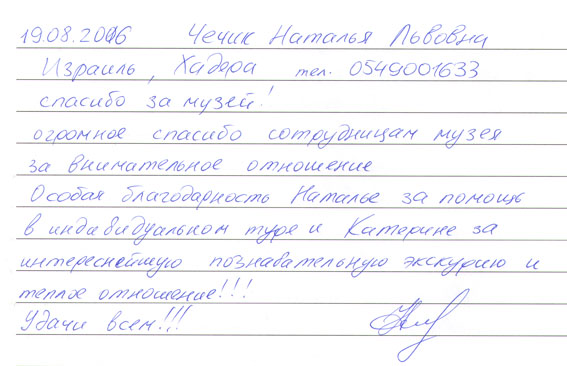 19.08.2016 Чечик Наталья Львовна
Израиль, Хадера тел. 0549001633
спасибо за музей!
огромное спасибо сотрудницам музея
за внимательное отношение
Особая благодарность Наталье за помощь
в индивидуальном туре и Катерине за
интереснейшую познавательную экскурию и
теплое отношение!!!
Удачи всем!!!